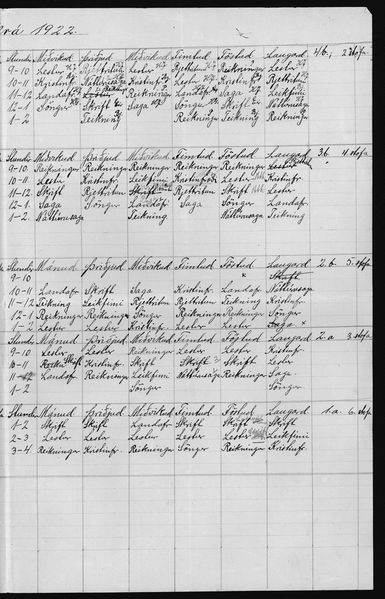 rá 1922.
Stundir Miðvikud Þriðjud Miðvikud Fimtud Föstud Laugard 4 b, 2 stofa
9-10 Lestur Rjettritun Lestur Rjettritun Reikningur Lestur
10-11 Kristinfr. Náttúrusaga Kristinfr. Lestur Kristinfr. Rjettritun
11-12 Landafr. Lestur Reikningur Landafr. Saga Leikfimi
12-1 Söngur Skrift Saga Söngur Skrift Náttúrusaga
1-2 Reikning Reikningur Reikningur Reikningur
Stundir Miðvikud Þriðjud Miðvikud Fimtud Föstud Laugard 3 b. 4 stofa
9-10 Reikningur Reikningur Reikningur Reikningur Reikningur
10-11 Lestur Kristinfr. Leikfimi Kristinfræði Lestur Kristinfr.
11-12 Skrift Rjettritun Skrift Rjettritun Skrift Lestur
12-1 Saga Söngur Landafr Saga Söngur Landafr.
1-2 Náttúrusaga Teikning Náttúrusaga Teikning
Stundir Mánud Þriðjud Miðvikud Fimtud Föstud Laugard 2. b. 5. stofa
9-10 x Skrift
10-11 Landafr. Skrift Saga Kristinfr. Landafr. Náttúrusaga
11-12 Teikning Leikfimi Rjettritun Rjettritun Teikning Kristinfr.
12-1 Reikningur Söngur Reikningur Reikningur Reikningur Söngur
1-2 Lestur Lestur Kristinfr. Lestur Lestur Saga x
Stundir Mánud Þriðjud Miðvikud Fimtud Föstud Laugard 2. a. 3. stofa
9-10 Lestur Lestur Reikningur Lestur Lestur Kristinfr.
10-11 Skrift Kristinfr. Skrift Skrift Skrift Lestur
11-12 Landafr. Reikningur Leikfimi Náttúrusaga Reikningur Saga
1-2 Söngur Söngur
Stundir Mánud Þriðjud Miðvikud Fimtud Föstud Laugard 1. a. 6. stofa
1-2 Skrift Skrift Landafr Skrift Skrift Skrift
2-3 Lestur Lestur Lestur Lestur Lestur Leikfimi
3-4 Reikningur Kristinfr. Reikningur Söngur Reikningur Kristinfr.